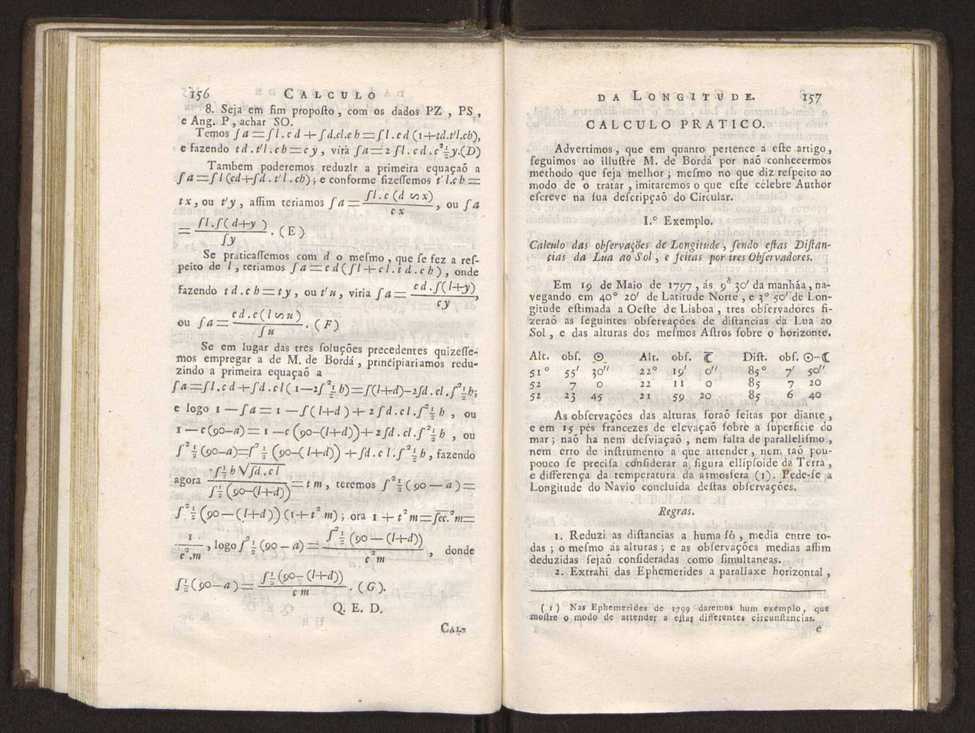 156 CALCULO
8. Seja em fim propoſto, com os dados PZ, PS,
e Ang. P, achar SO.
Temos ſa=ſl.cd+ſd.cl.cb=ſl.cd(1+td.t'l.cb),
e fazendo td.t'l.cb=cy, virá ſa=2ſl.cd.c²½y.(D)
Tambem poderemos reduzIr a primeira equaçaõ a
ſa=ſl(cd+ſd.t'l.cb); e conforme fizeſſemos t'l.cb=
tx, ou t'y, aſſim teriamos ſa=ſl.c(d∽x)/cx, ou ſa
=ſl.ſ(d+y)/ſy.(E)
Se praticaſſemos com d o meſmo, que ſe fez a reſ-
peito de l, teriamos ſa=cd(ſl+cl.td.cb), onde
fazendo td.cb=ty, ou t'u, viria ſa=cd.ſ(l+y)/cy,
ou ſa=cd.c(l∽u)/ſu.(F)
Se em lugar das tres ſoluções precedentes quizeſſe-
mos empregar a de M. de Bordá, principiariamos redu-
zindo a primeira equaçaõ a
ſa=ſl.cd+ſd.cl(1—2ſ²½b)=ſ(l+d)—2ſd.cl.ſ²½b;
e logo 1—ſa=1—ſ(l+d)+2ſd.cl.ſ²½b, ou
1—c(90—a)=1—c(90—(l+d))+2ſd.cl.ſ²½b, ou
ſ²½(90—a)=ſ²½(90—(l+d))+ſd.cl.ſ²½b, fazendo
agora ſ½b√ſd.cl/ſ½(90—(l+d))=tm, teremos ſ²½(90—a)=
ſ²½(90—(l+d))(1+t²m); ora 1+t²m=ſec.²m=
1/c²m, logo ſ²½(90—a)=ſ²½(90—(l+d))/c²m, donde
ſ½(90—a)=ſ½(90—(l+d))/cm.(G).
Q. E. D.
CAL-
DA LONGITUDE. 157
CALCULO PRATICO.
Advertimos, que em quanto pertence a eſte artigo,
ſeguimos ao illuſtre M. de Bordá por naõ conhecermos
methodo que ſeja melhor; meſmo no que diz reſpeito ao
modo de o tratar, imitaremos o que eſte célebre Author
eſcreve na ſua deſcripçaõ do Circular.
I.º Exemplo.
Calculo das obſervações de Longitude, ſendo eſtas Diſtan-
cias da Lua ao Sol, e feitas por tres Obſervadores.
Em 19 de Maio de 1797, ás 9ʰ 30' da manhãa, na-
vegando em 40° 20' de Latitude Norte, e 3° 50' de Lon-
gitude eſtimada a Oeſte de Lisboa, tres obſervadores fi-
zeraõ as ſeguintes obſervações de diſtancias da Lua ao
Sol, e das alturas dos meſmos Aſtros ſobre o horizonte.
Alt. obſ. ☉ Alt. obſ. ☾ Diſt. obſ. ☉—☾
51° 55' 30'' 22° 19' 0'' 85° 7' 50''
52 7 0 22 11 0 85 7 20
52 23 45 21 59 20 85 6 40
As obſervações das alturas foraõ feitas por diante,
e em 15 pés francezes de elevaçaõ ſobre a ſuperficie do
mar; naõ ha nem deſviaçaõ, nem falta de paralleliſmo,
nem erro de inſtrumento a que attender, nem taõ pou-
pouco ſe preciſa conſiderar a figura ellipſoide da Terra,
e differença da temperatura da atmosfera (1). Pede-ſe a
Longitude do Navio concluida deſtas obſervações.
Regras.
1. Reduzi as diſtancias a huma ſó, media entre to-
das; o meſmo ás alturas; e as obſervações medias aſſim
deduzidas ſejaõ conſideradas como ſimultaneas.
2. Extrahi das Ephemerides a parallaxe horizontal,
(1) Nas Ephemerides de 1799 daremos hum exemplo, que
moſtre o modo de attender a eſtas differentes circunſtancias.
e